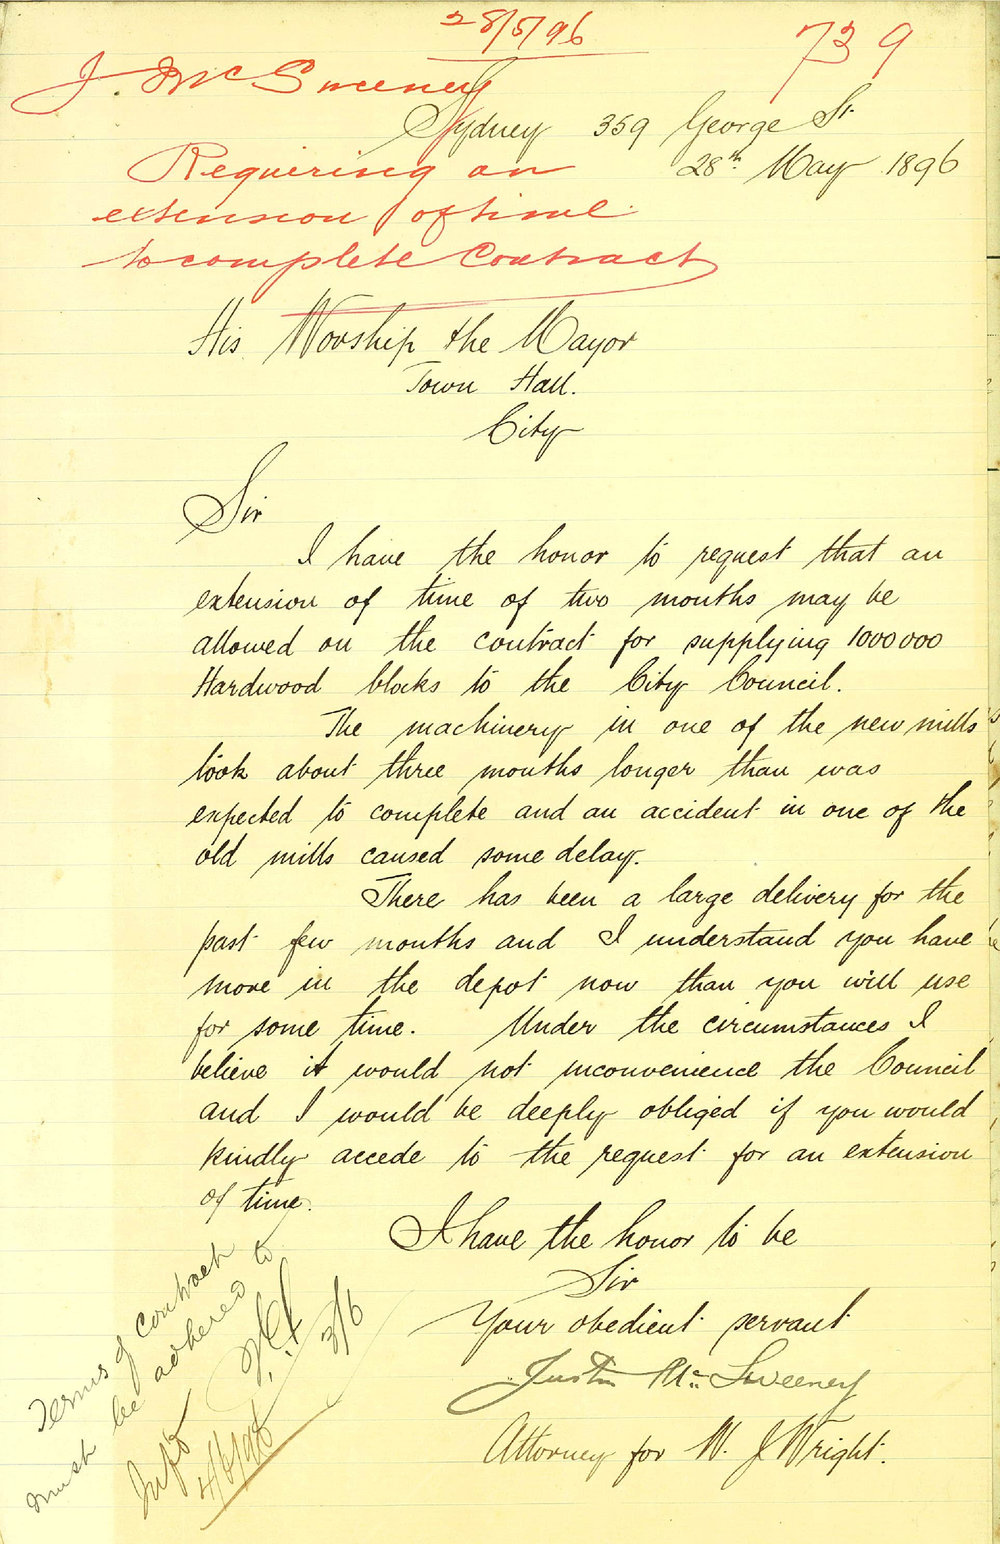 28/5/96
739
J. McSweeney
Sydney 359 George St.
28th May 1896
Requiering an
extension of time
to complete Contract
His Worship the Mayor
Town Hall.
City
Sir
I have the honor to request that an
extension of time of two months may be
allowed on the contract for supplying 1000000
Hardwood blocks to the City Council.
The machinery in one of the new mills
took about three months longer than was
expected to complete and an accident in one of the
old mills caused some delay.
There has been a large delivery for the
past few months and I understand you have
more in the depot now than you will use
for some time. Under the circumstances I
believe it would not inconvenience the Council
and I would be deeply obliged if you would
kindly accede to the request for an extension
of time.
I have the honor to be
Sir
Your obedient servant
Justin McSweeney
Attorney for W. J. Wright.
Terms of contract
must be adhered to
3/6
4/6/96